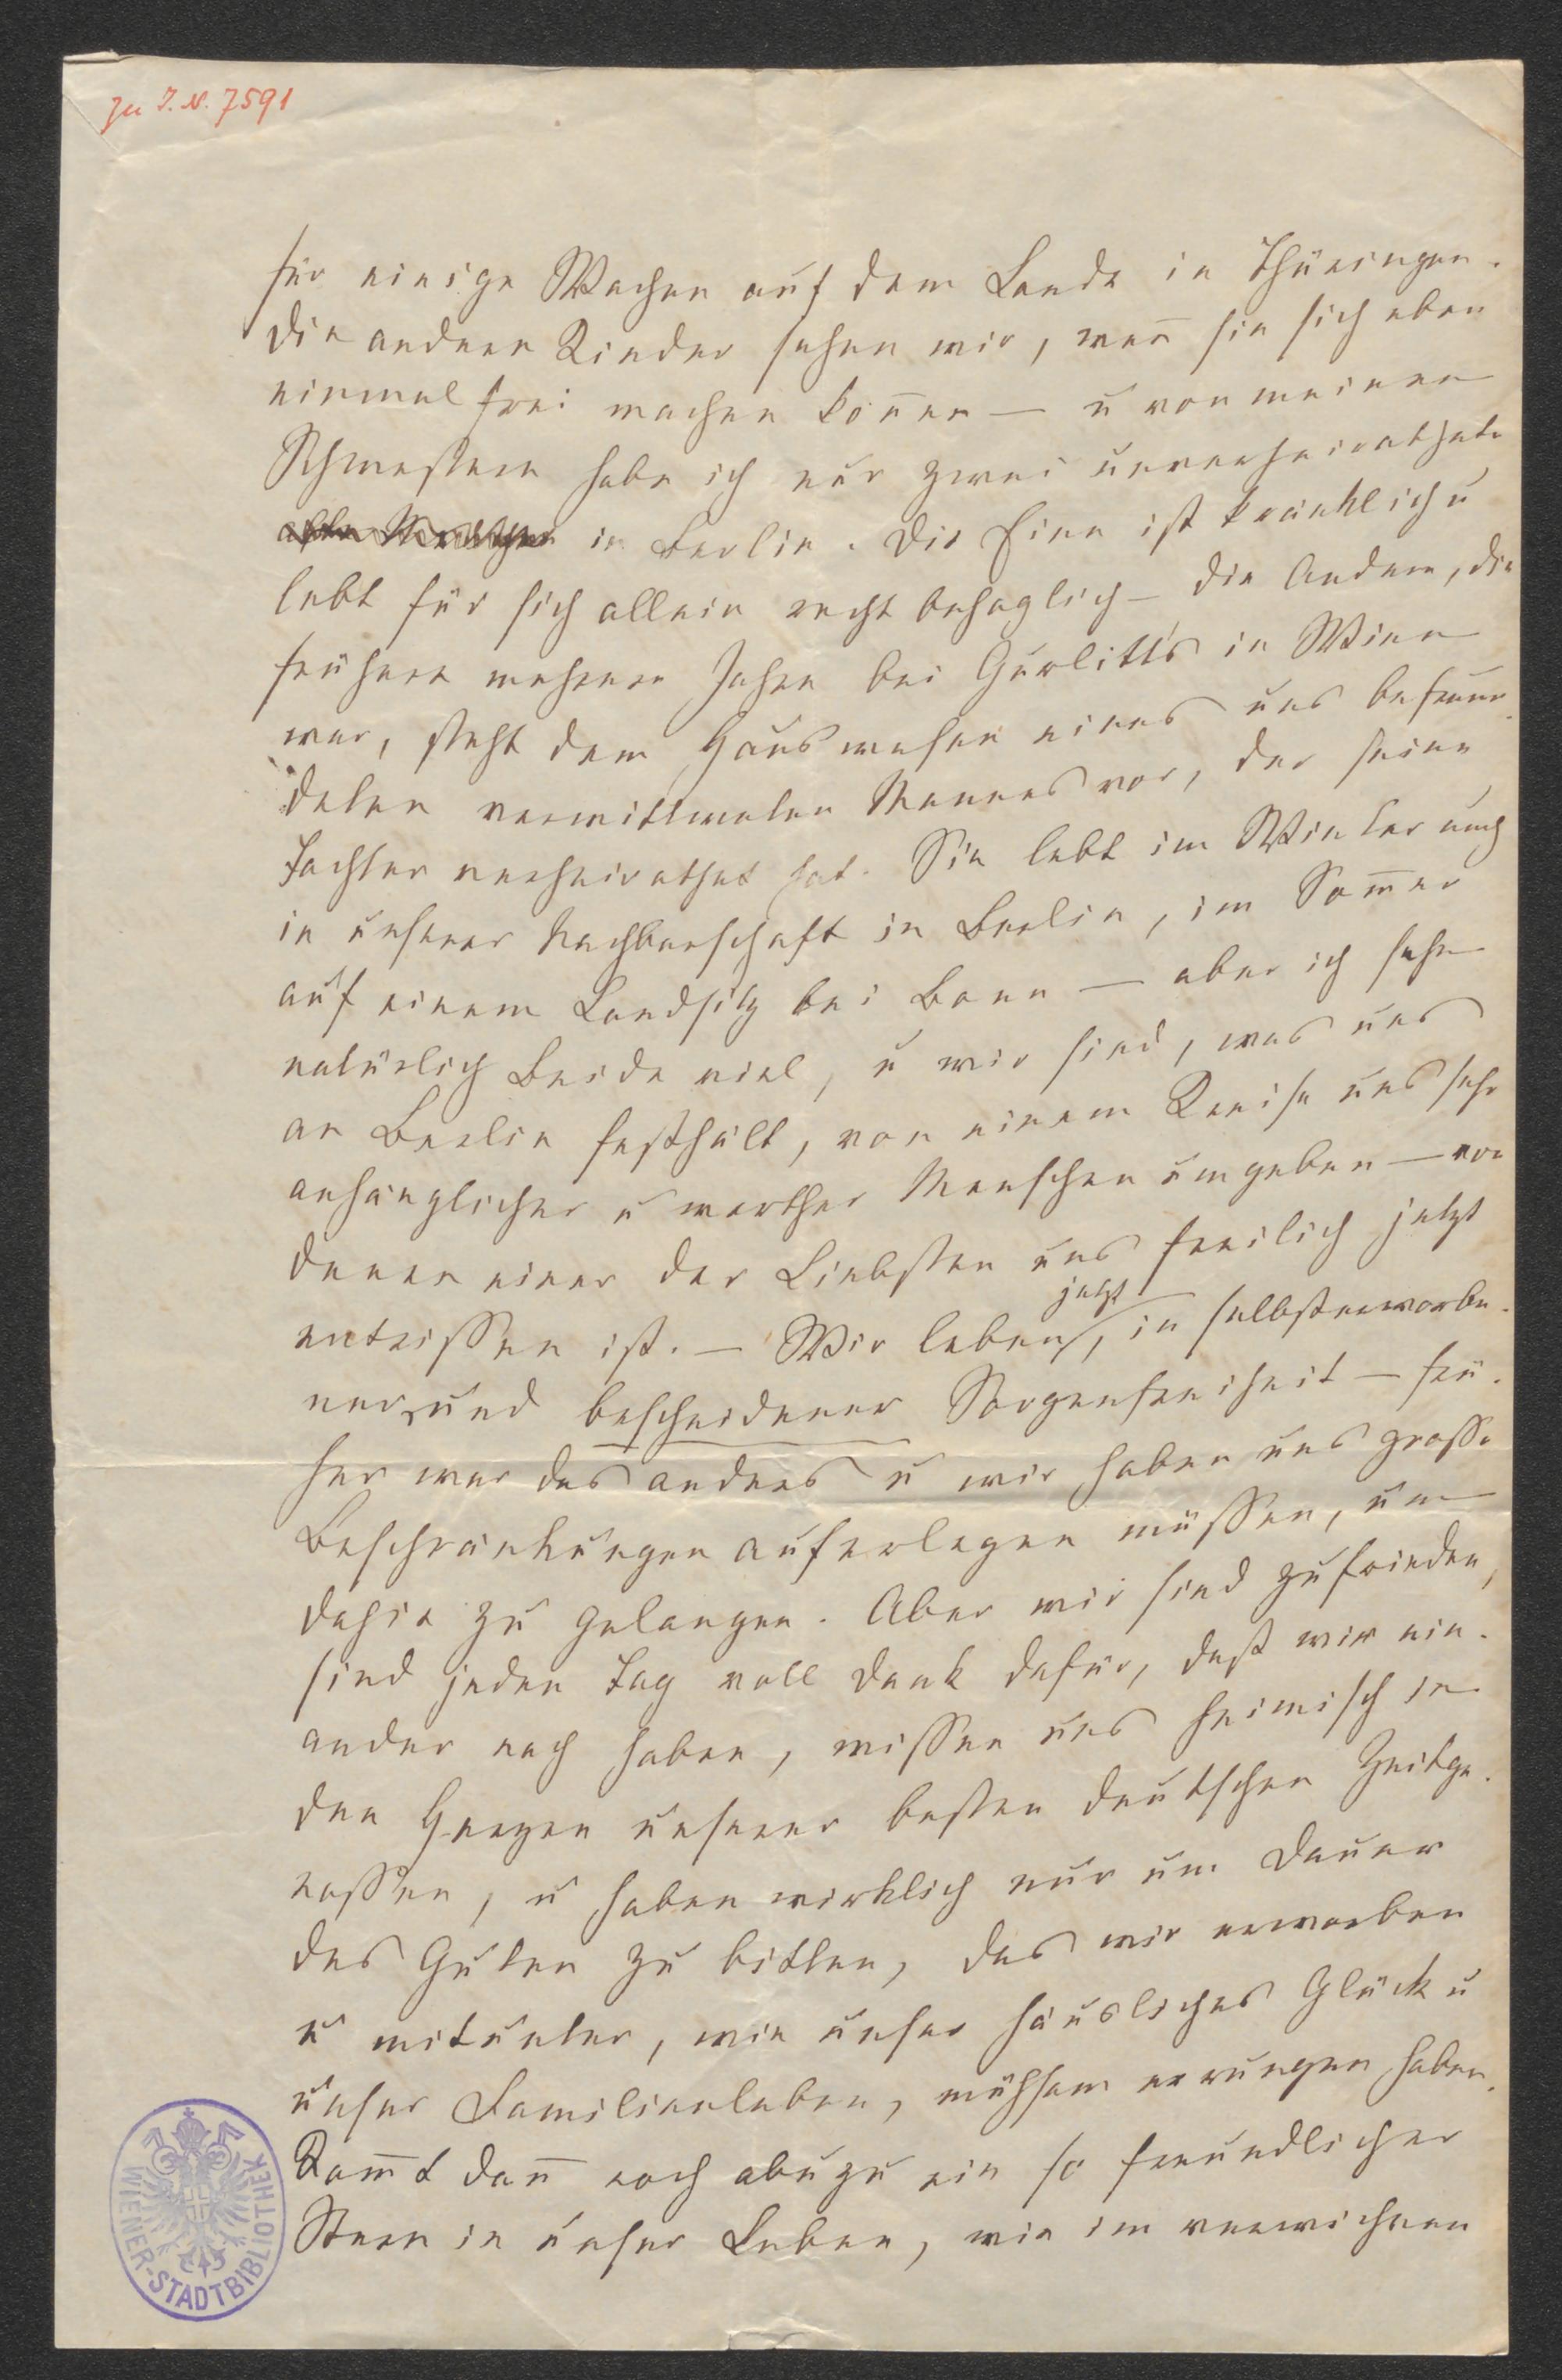 zu I. N. 7591
für einige Wochen auf dem Lande in Thüringen.
Die andern Kinder sehen wir, wen̄ sie sich eben
einmal frei machen kön̄en — u von meinen
Schwestern habe ich nur zwei unverheirathete
in Berlin. Die Eine ist kränklich u
lebt für sich allein recht behaglich — die Andere, die
früher mehrere Jahre bei Gurlitt's in Wien
war, steht dem Hauswesen eines uns befreun-
deten verwittweten Mannes vor, der seine
Tochter verheirathet hat. Sie lebt im Winter auch
in unserer Nachbarschaft in Berlin, im Som̄er
auf einem Landsitz bei Bonn — aber ich sehe
natürlich Beide viel, u wir sind, was uns
an Berlin festhält, von einem Kreise uns sehr
anhänglicher u werther Menschen umgeben — von
denen einer der Liebsten uns freilich jetzt
entrissen ist. — Wir leben jetzt, in selbsterworbe-
ner, und bescheidener Sorgenfreiheit — frü-
her war das anders u wir haben uns grosse
Beschränkungen auferlegen müssen, um
dahin zu gelangen. Aber wir sind zufrieden,
sind jeden Tag voll Dank dafür, daß wir ein-
ander noch haben, wissen uns heimisch in
den Herzen unserer besten deutschen Zeitge-
nossen, u haben wirklich nur um Dauer
des Guten zu bitten, das wir erworben
u mitunter, wie unser häusliches Glück u
unser Familienleben, mühsam errungen haben.
Kom̄t dan̄ noch ab u zu ein so freundlicher
Stern in unser Leben, wie im verwichnen
WIENER-STADTBIBLIOTHEK